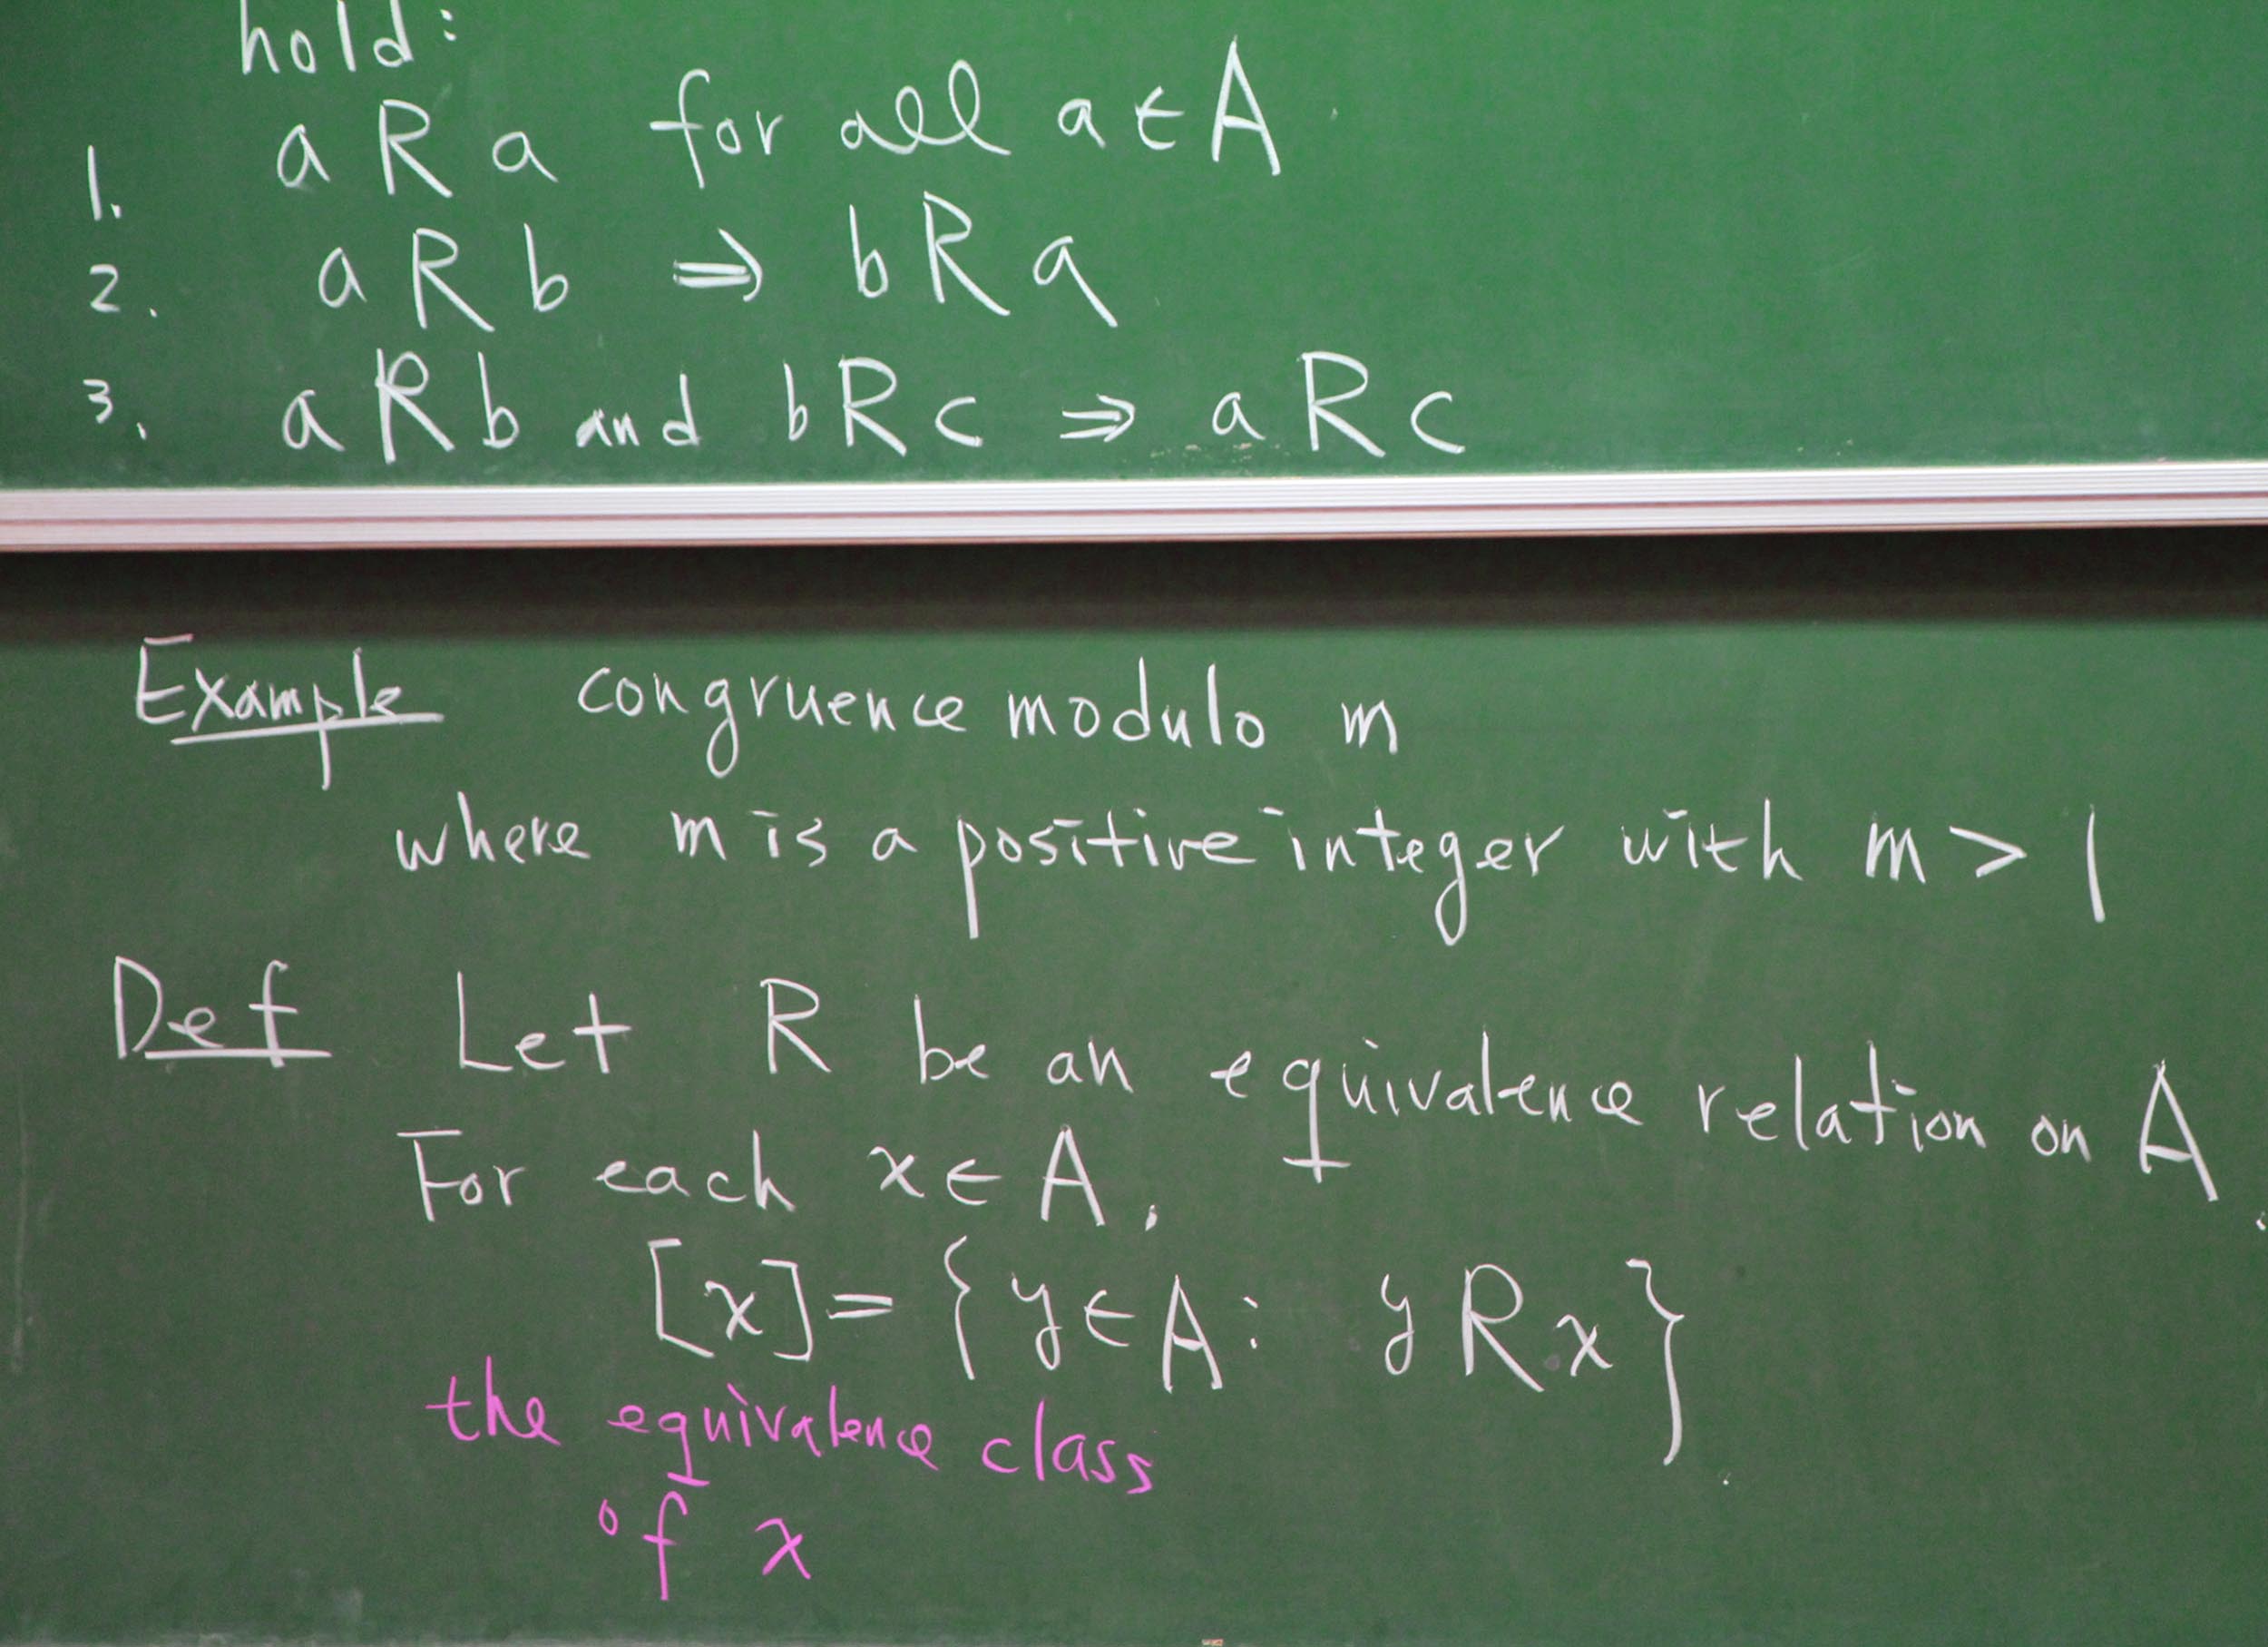 hold:
1. a R a for all a ∈ A
2. a R b ⇒ b R a
3. a R b and b R c ⇒ a R c
Example congruence modulo m
where m is a positive integer with m > 1
Def Let R be an equivalence relation on A.
For each x ∈ A,
[x] = { y ∈ A : y R x }
the equivalence class
of x